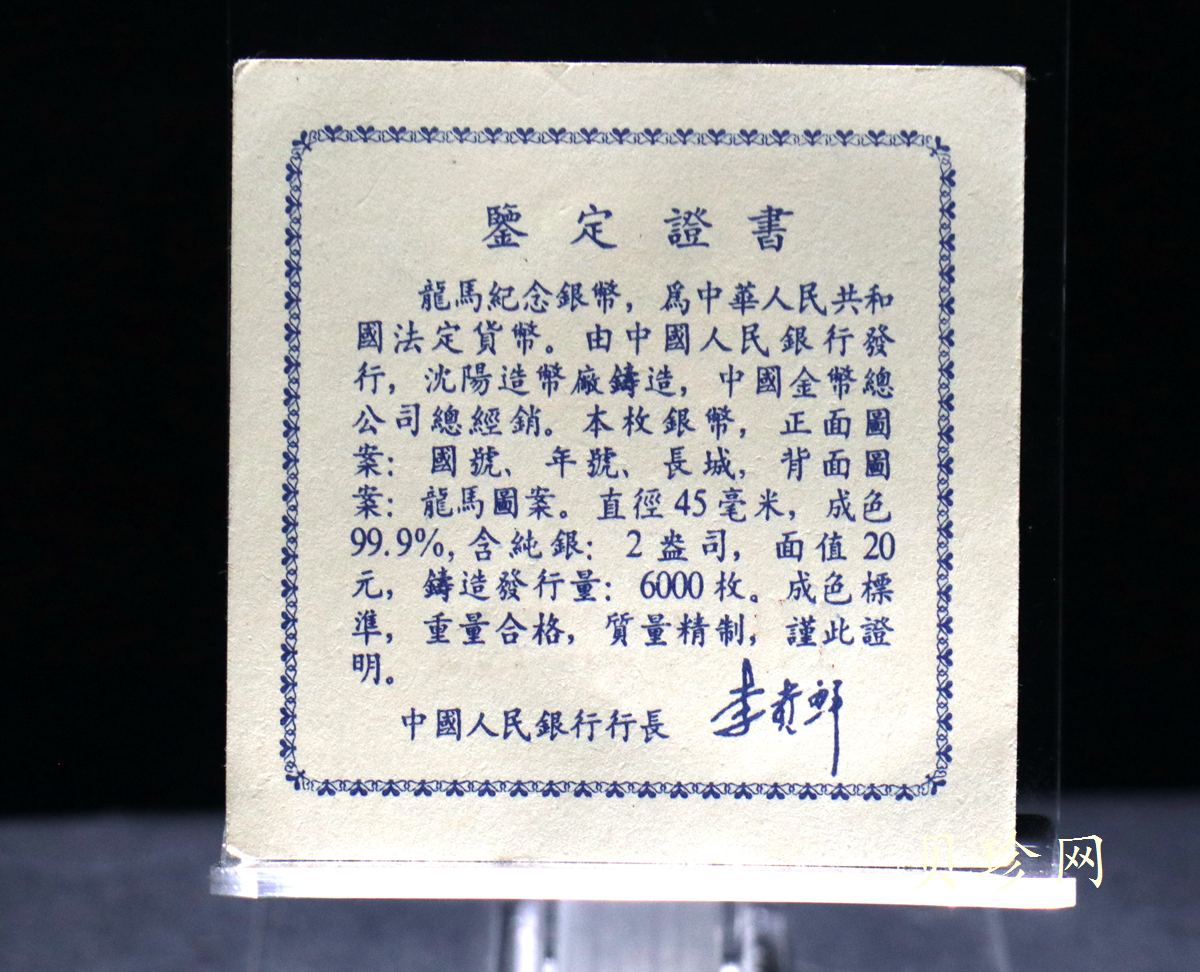 鑒定證書
龍馬紀念銀幣，爲中華人民共和
國法定貨幣。由中國人民銀行發
行，沈陽造幣廠鑄造，中國金幣總
公司總經銷。本枚銀幣，正面圖
案：國號、年號、長城，背面圖
案：龍馬圖案。直徑45毫米，成色
99.9%，含純銀：2盎司，面值20
元，鑄造發行量：6000枚。成色標
準，重量合格，質量精制，謹此證
明。
中國人民銀行行長 李貴鮮
贝珍网